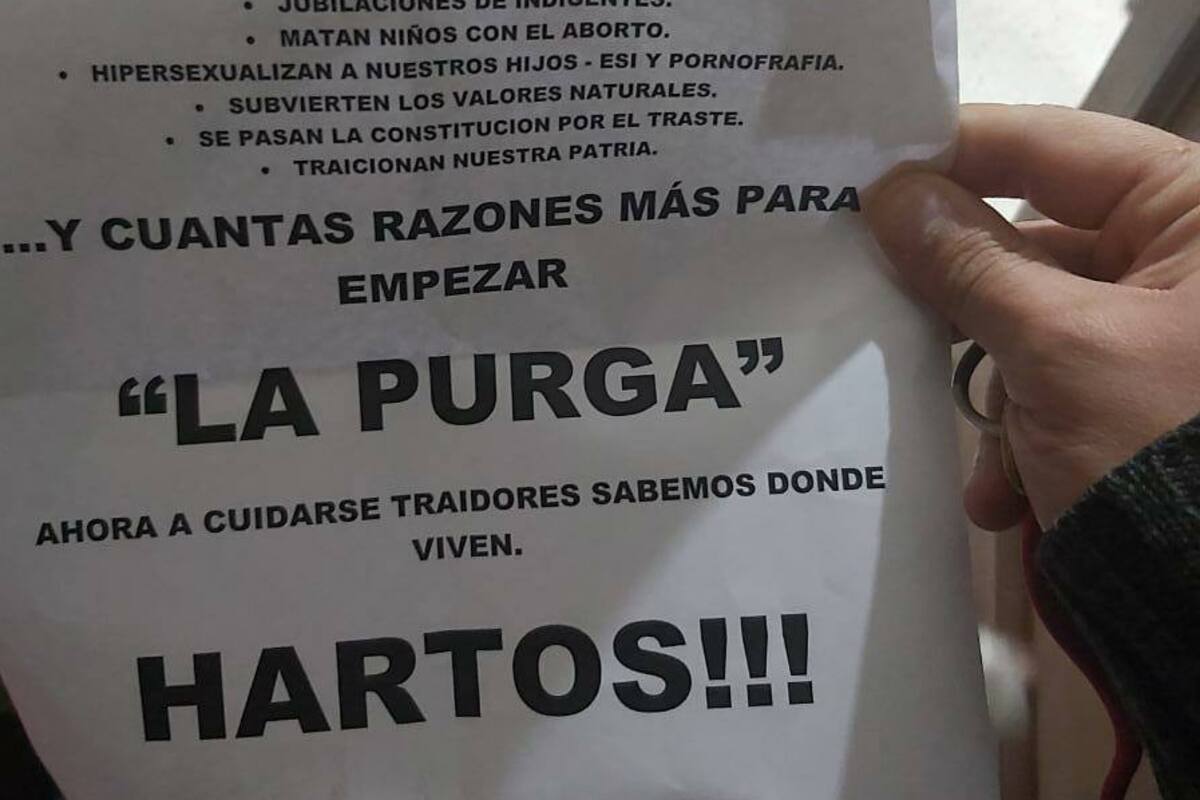 • JUBILACIONES DE INDIGENTES.
• MATAN NIÑOS CON EL ABORTO.
• HIPERSEXUALIZAN A NUESTROS HIJOS - ESI Y PORNOFRAFIA.
• SUBVIERTEN LOS VALORES NATURALES.
• SE PASAN LA CONSTITUCION POR EL TRASTE.
• TRAICIONAN NUESTRA PATRIA.
...Y CUANTAS RAZONES MÁS PARA
EMPEZAR
“LA PURGA”
AHORA A CUIDARSE TRAIDORES SABEMOS DONDE
VIVEN.
HARTOS!!!